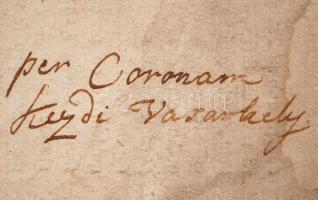 per Coronam
Kezdi Vasarhely